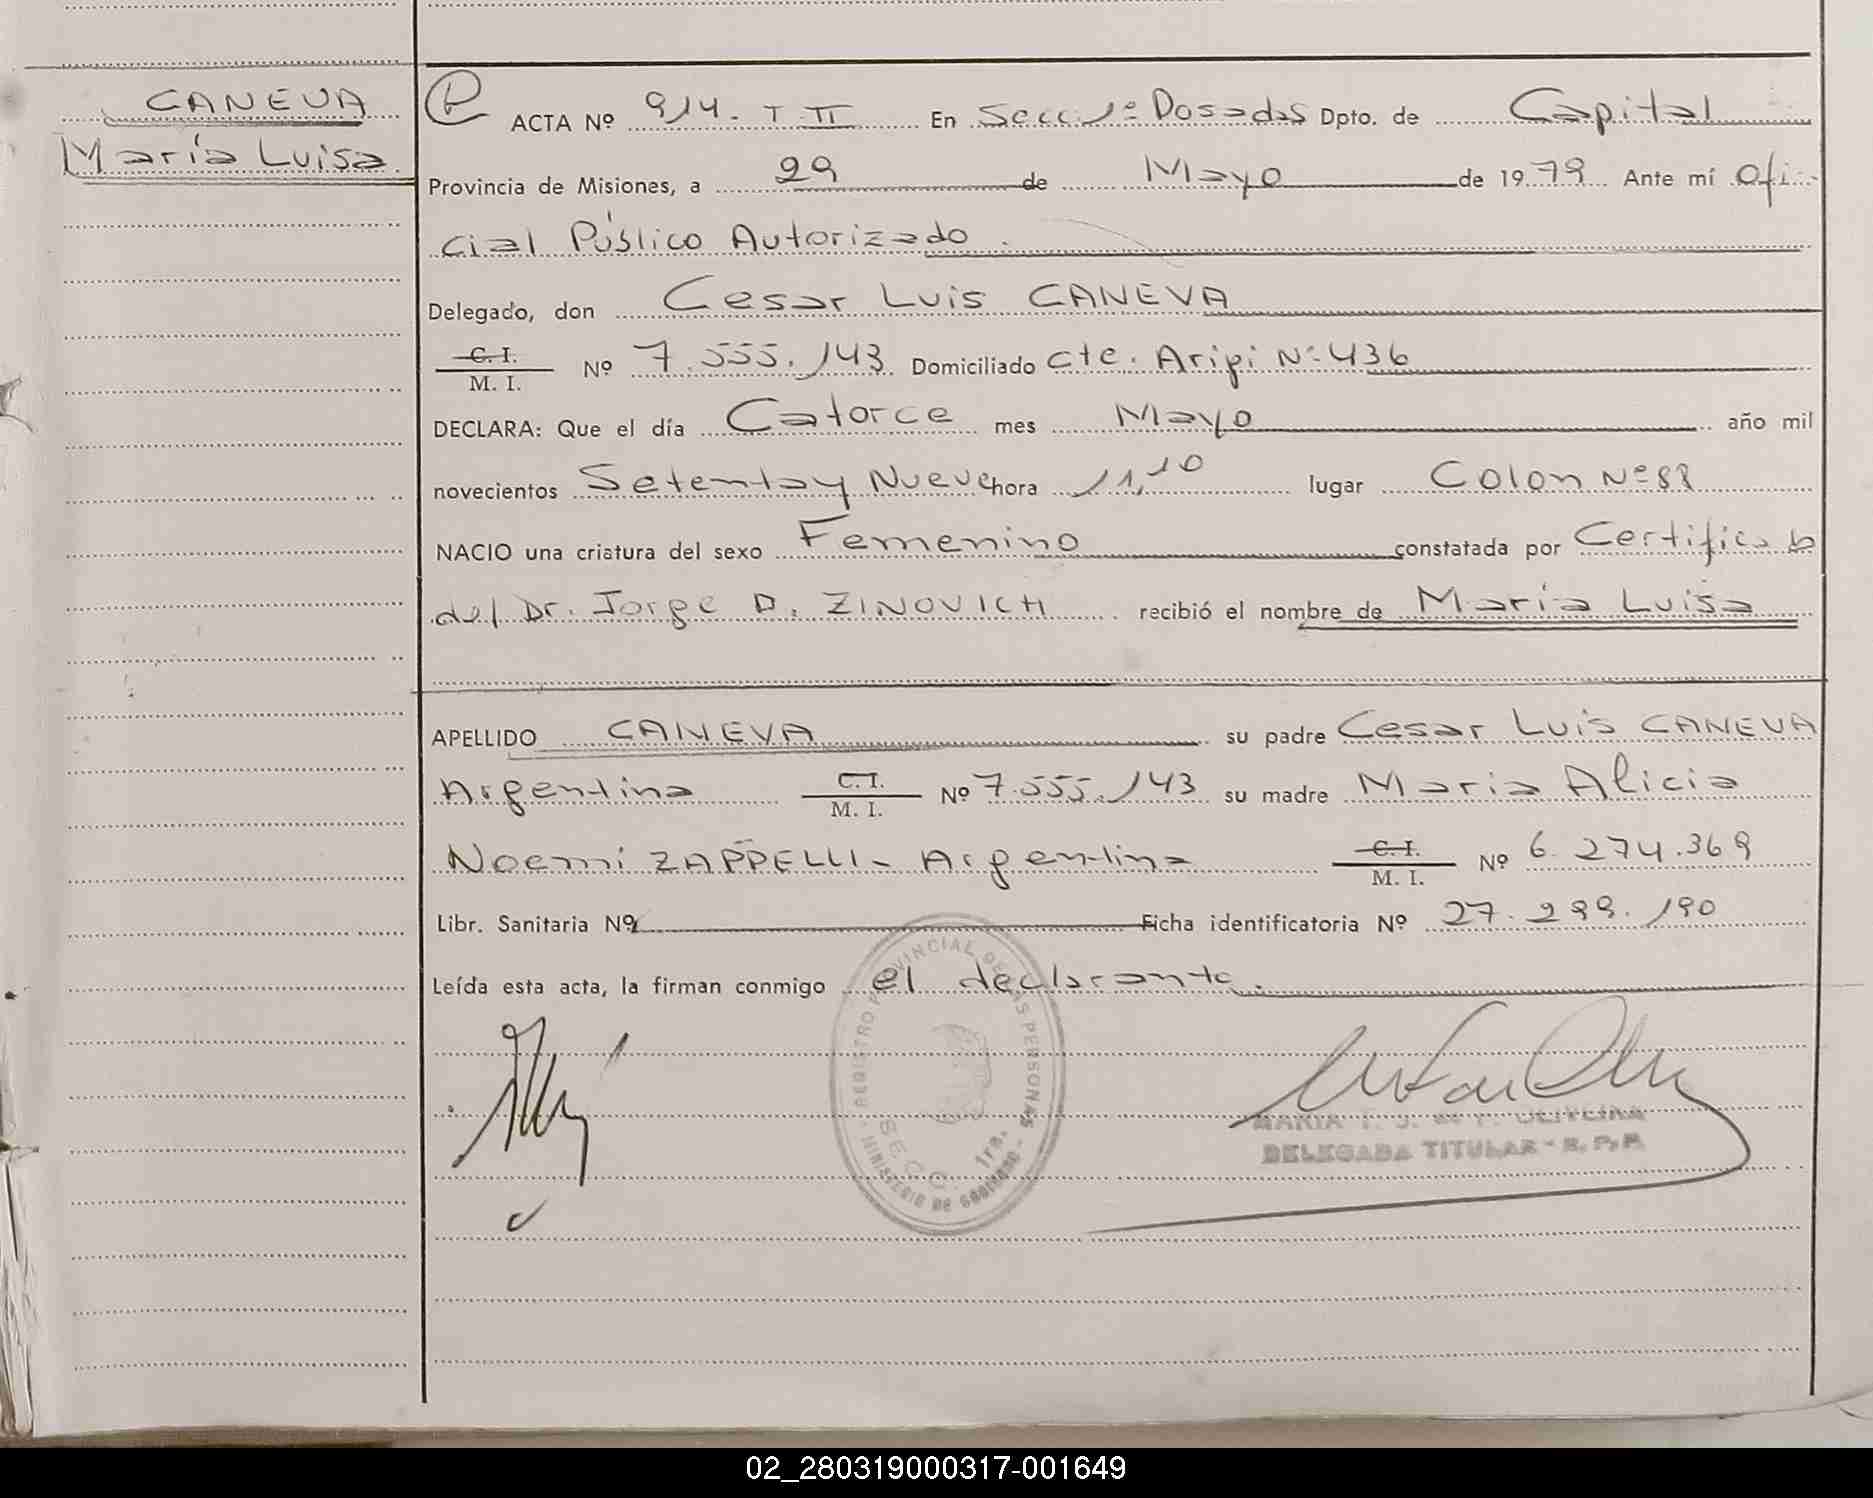 CANEVA
María Luisa
ACTA Nº 914. T II En Secc. 1ª Posadas Dpto. de Capital
Provincia de Misiones, a 29 de Mayo de 1979 Ante mí Ofi-
cial Público Autorizado.
Delegado, don Cesar Luis CANEVA
C. I.
M. I. Nº 7.555.143 Domiciliado Cte. Aripi Nº 436
DECLARA: Que el día Catorce mes Mayo año mil
novecientos Setenta y Nueve hora 11,10 lugar Colon Nº 88
NACIO una criatura del sexo Femenino constatada por Certificado
del Dr. Jorge D. ZINOVICH recibió el nombre de María Luisa
APELLIDO CANEVA su padre Cesar Luis CANEVA
Argentina C. I.
M. I. Nº 7.555.143 su madre Maria Alicia
Noemí ZAPPELLI - Argentina C. I.
M. I. Nº 6.274.369
Libr. Sanitaria Nº Ficha identificatoria Nº 27.299.190
Leída esta acta, la firman conmigo el declarante.
REGISTRO PROVINCIAL DE LAS PERSONAS
SECC. 1ra.
MINISTERIO DE GOBIERNO
MARIA T. J. de F. OLIVEIRA
DELEGADA TITULAR - R. P. P.
02_280319000317-001649